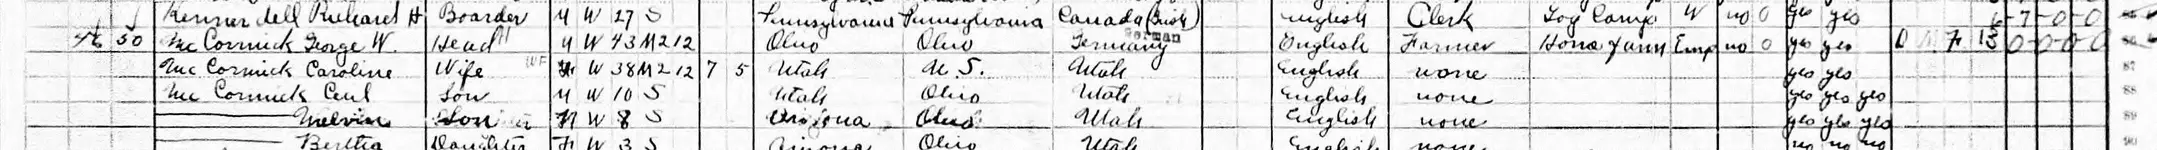 Kennerdell Richard H Boarder M W 27 S Pennsylvania Pennsylvania Canada (Eng) English Clerk Log Camp W no 0 yes yes 6-7-0-0
46 50 Mc Cormick George W. Head M W 43 M2 12 Ohio Ohio Germany German English Farmer Home farm Emp no 0 yes yes O M F 13 0-0-0-0 86
Mc Cormick Caroline Wife F W 38 M2 12 7 5 Utah U. S. Utah English none yes yes 87
Mc Cormick Son M W 10 S Utah Ohio Utah English none yes yes yes 88
Melvin Son M W 8 S Arizona Ohio Utah English none yes yes yes 89
Bertha Daughter F W 3 S Arizona Ohio Utah English none no no no 90